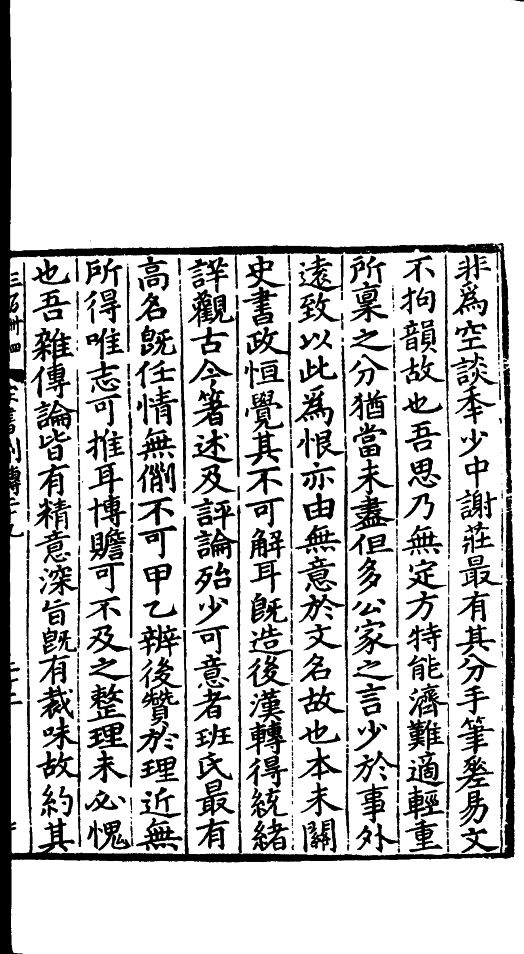 非為空談秊少中謝莊最有其分手筆差易文
不拘韻故也吾思乃無定方特能濟難適輕重
所稟之分猶當未盡但多公家之言少於事外
遠致以此為恨亦由無意於文名故也本未關
史書政恒覺其不可解耳旣造後漢轉得統緒
詳觀古今著述及評論殆少可意者班氏最有
高名旣任情無例不可甲乙辨後贊於理近無
所得唯志可推耳博贍可不及之整理未必愧
也吾雜傳論皆有精意深旨旣有裁味故約其